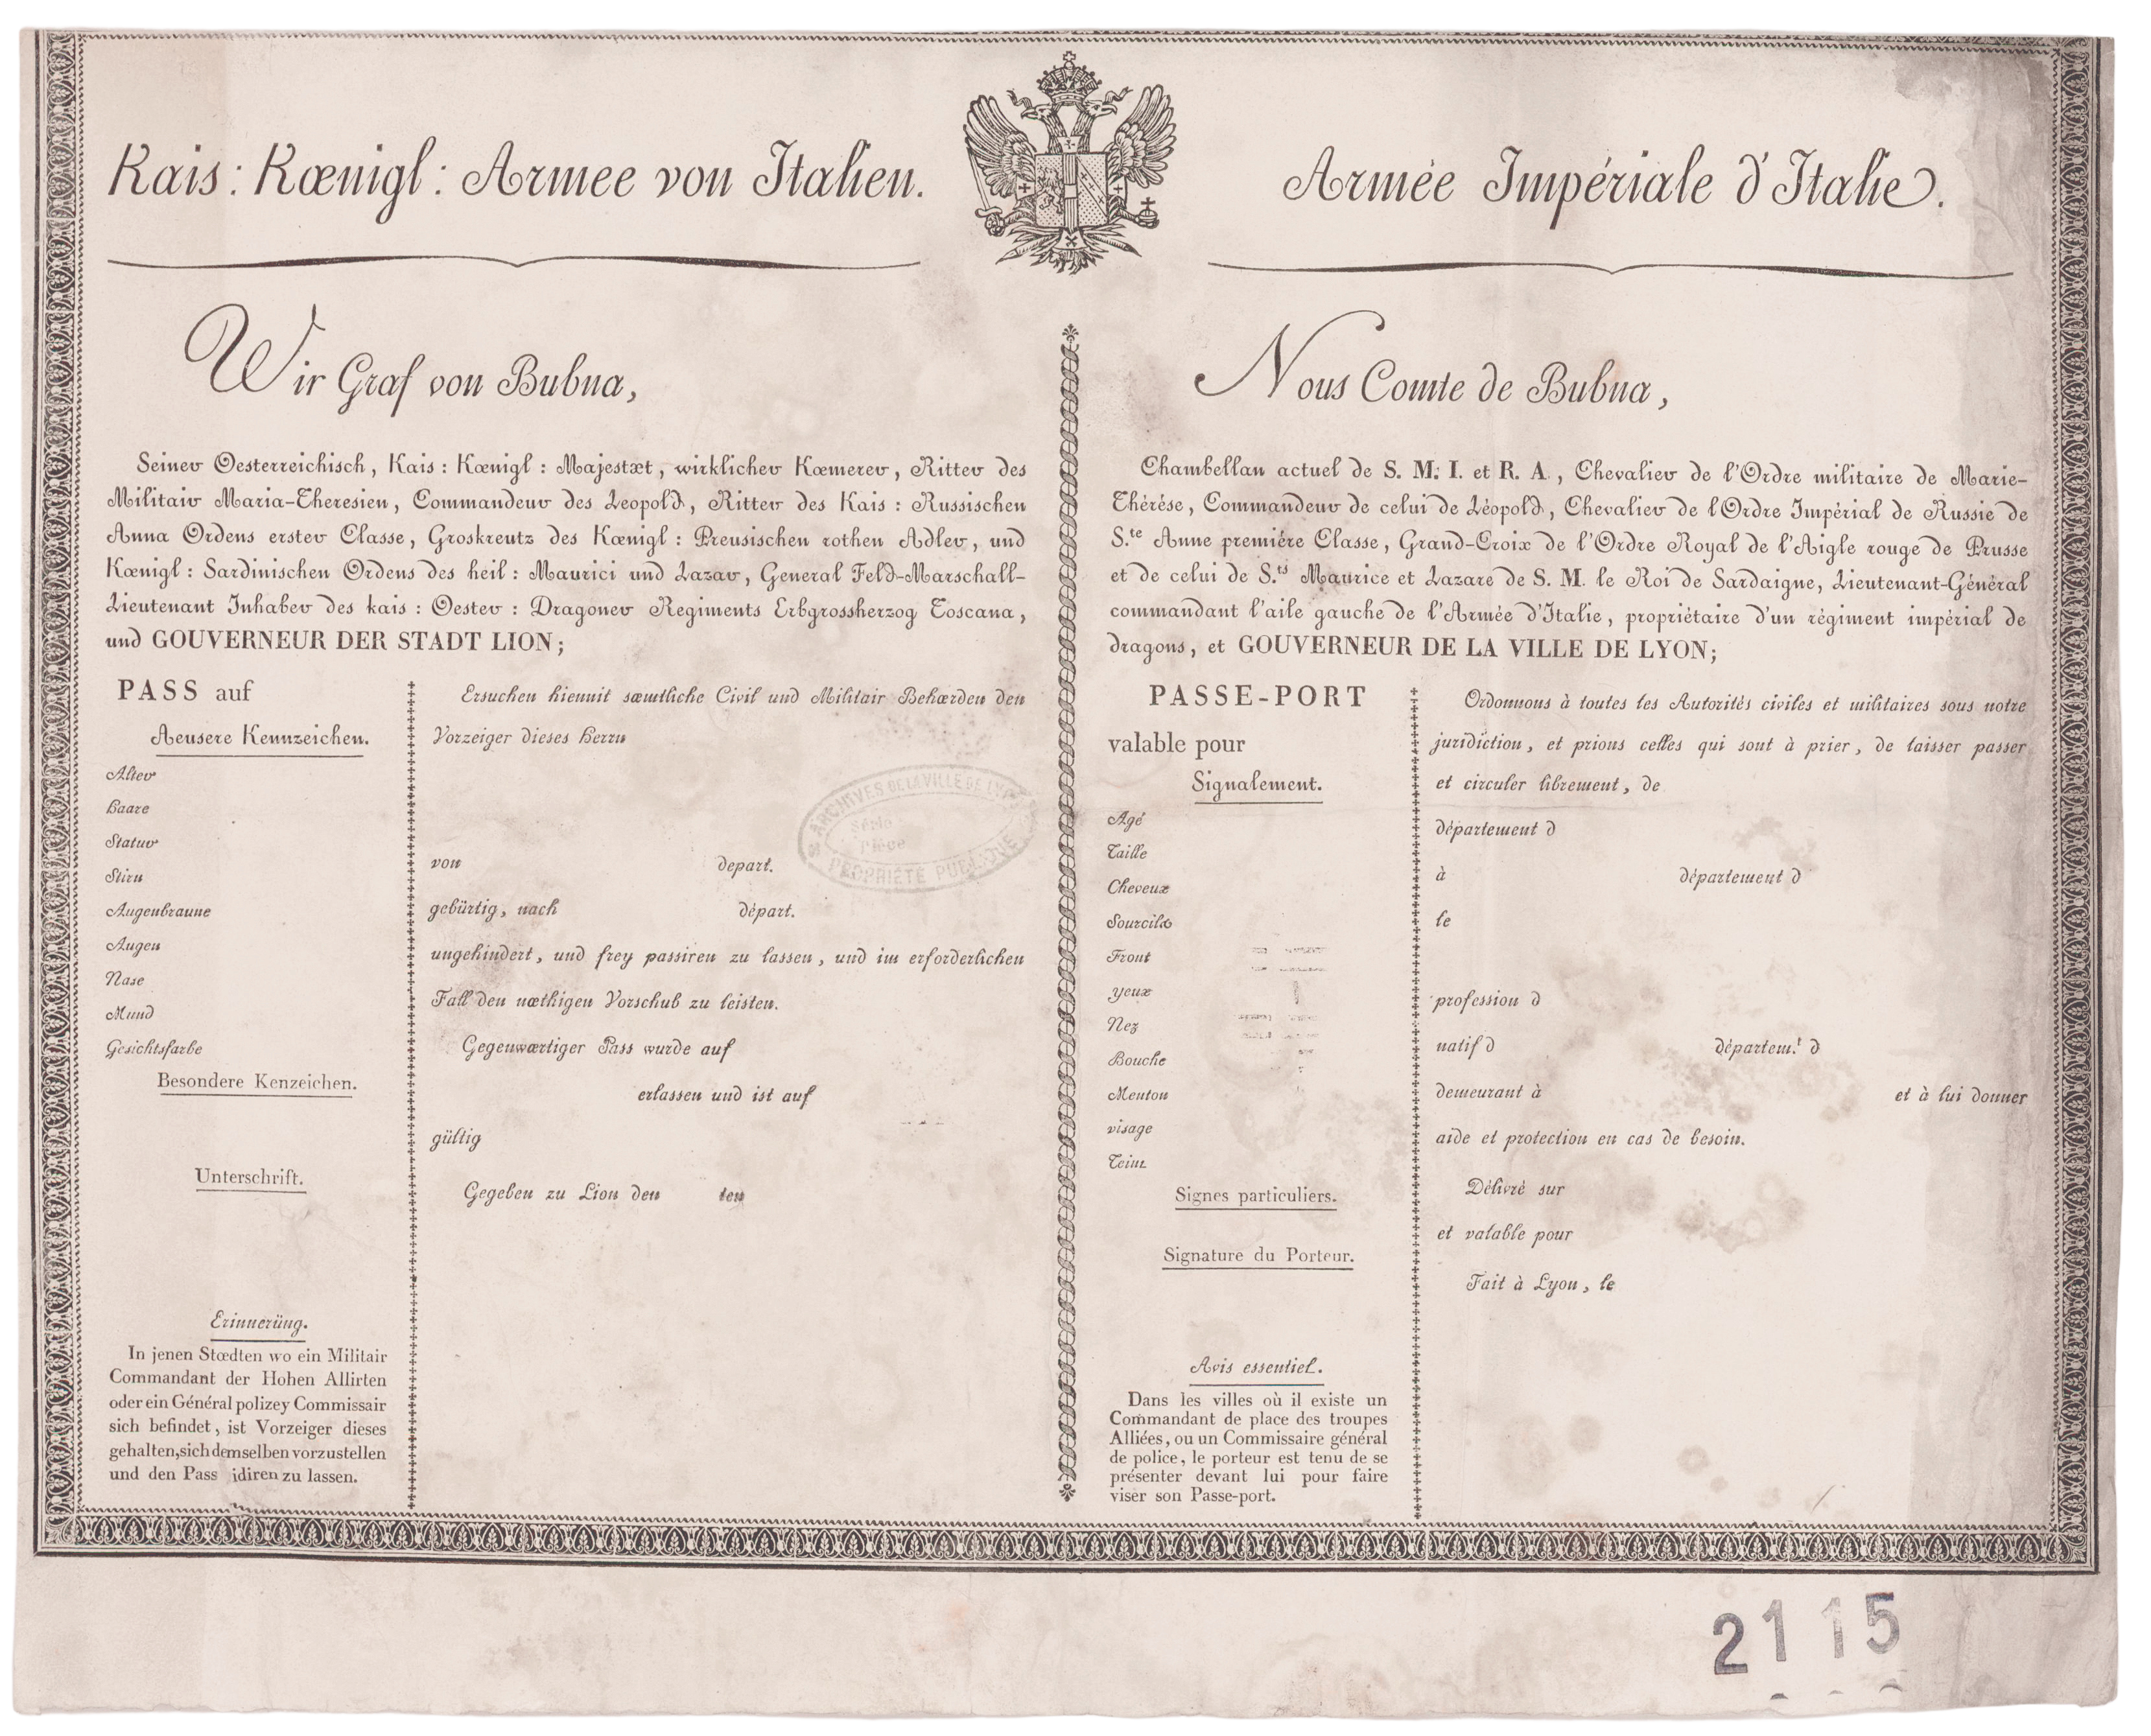 Kais: Kœnigl: Armee von Italien.
Armée Impériale d'Italie.
Wir Graf von Bubna,
Seiner Oesterreichisch, Kais: Kœnigl: Majestæt, wirklicher Kœmerer, Ritter des
Militair Maria-Theresien, Commandeur des Leopold, Ritter des Kais: Russischen
Anna Ordens erster Classe, Groskreutz des Kœnigl: Preusischen rothen Adler, und
Kœnigl: Sardinischen Ordens des heil: Maurici und Lazar, General Feld-Marschall-
Lieutenant Inhaber des kais: Oester: Dragoner Regiments Erbgrossherzog Toscana,
und GOUVERNEUR DER STADT LION;
PASS auf
Aeusere Kennzeichen.
Alter
Haare
Statur
Stirn
Augenbraune
Augen
Nase
Mund
Gesichtsfarbe
Besondere Kenzeichen.
Unterschrift.
Erinnerüng.
In jenen Stœdten wo ein Militair
Commandant der Hohen Allirten
oder ein Général polizey Commissair
sich befindet, ist Vorzeiger dieses
gehalten, sich demselben vorzustellen
und den Pass idiren zu lassen.
Ersuchen hiemit sæmtliche Civil und Militair Behœrden den
Vorzeiger dieses Herrn
von depart.
gebürtig, nach départ.
ungehindert, und frey passiren zu lassen, und im erforderlichen
Fall den nœthigen Vorschub zu leisten.
Gegenwœrtiger Pass wurde auf
erlassen und ist auf
gültig
Gegeben zu Lion den ten
ARCHIVES DE LA VILLE DE LYON
Série
Pièce
PROPRIÉTÉ PUBLIQUE
Nous Comte de Bubna,
Chambellan actuel de S. M. I. et R. A., Chevalier de l'Ordre militaire de Marie-
Thérèse, Commandeur de celui de Léopold, Chevalier de l'Ordre Impérial de Russie de
S.te Anne première Classe, Grand-Croix de l'Ordre Royal de l'Aigle rouge de Prusse
et de celui de S.ts Maurice et Lazare de S. M. le Roi de Sardaigne, Lieutenant-Général
commandant l'aile gauche de l'Armée d'Italie, propriétaire d'un régiment impérial de
dragons, et GOUVERNEUR DE LA VILLE DE LYON;
PASSE-PORT
valable pour
Signalement.
Agé
Taille
Cheveux
Sourcils
Front
Yeux
Nez
Bouche
Menton
visage
Teint
Signes particuliers.
Signature du Porteur.
Avis essentiel.
Dans les villes où il existe un
Commandant de place des troupes
Alliées, ou un Commissaire général
de police, le porteur est tenu de se
présenter devant lui pour faire
viser son Passe-port.
Ordonnons à toutes les Autorités civiles et militaires sous notre
juridiction, et prions celles qui sont à prier, de laisser passer
et circuler librement, de
département d
à département d
le
profession d
natif d départem.t d
demeurant à et à lui donner
aide et protection en cas de besoin.
Délivré sur
et valable pour
Fait à Lyon, le
2115